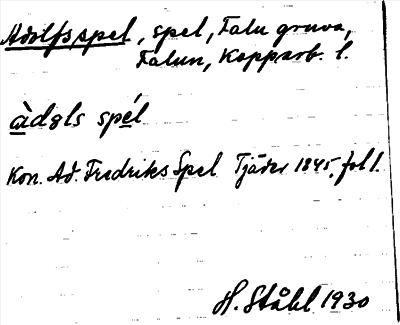 Adolfsspel, spel, Falu gruva,
Falun, Kopparb. l.
àdɷls spél
Kon. Ad. Fredriks Spel Tjäder 1845, fol 1.
H. Ståhl 1930